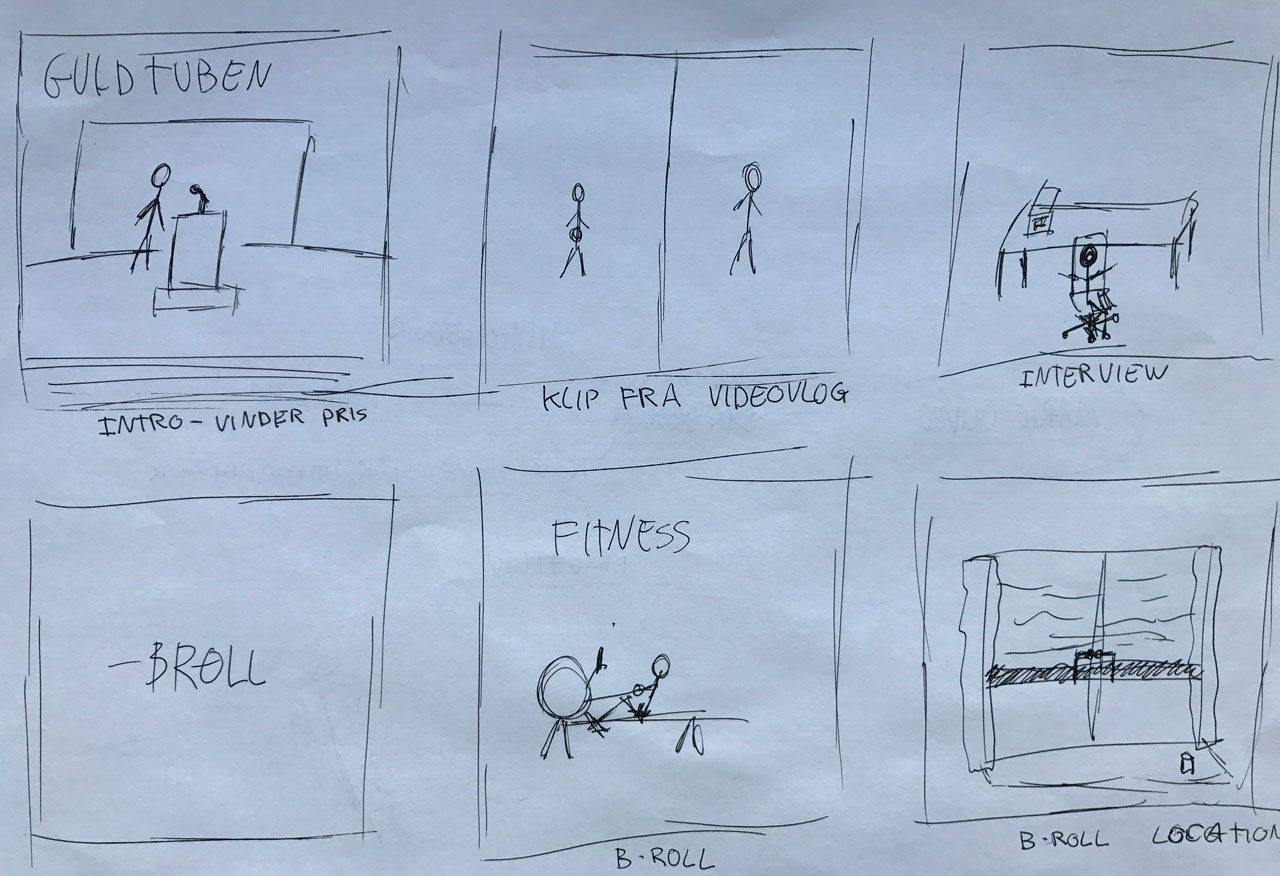 GULDTUBEN
INTRO - VINDER PRIS
KLIP FRA VIDEOVLOG
INTERVIEW
- BROLL
FITNESS
B-ROLL
B-ROLL LOCATION